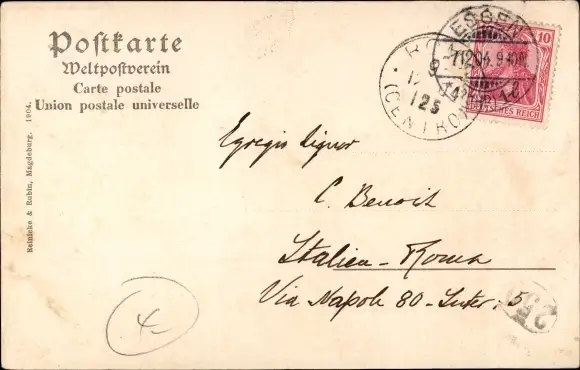 Postkarte
Weltpostverein
Carte postale
Union postale universelle
Reinicke & Rubin, Magdeburg. 1904.
ESSEN
7.12.04. 9-10
(CENTRO)
125
10
DEUTSCHES REICH
Egregio Signor
C. Benoit
Italien - Roma
Via Napoli 80 - Inter. 5